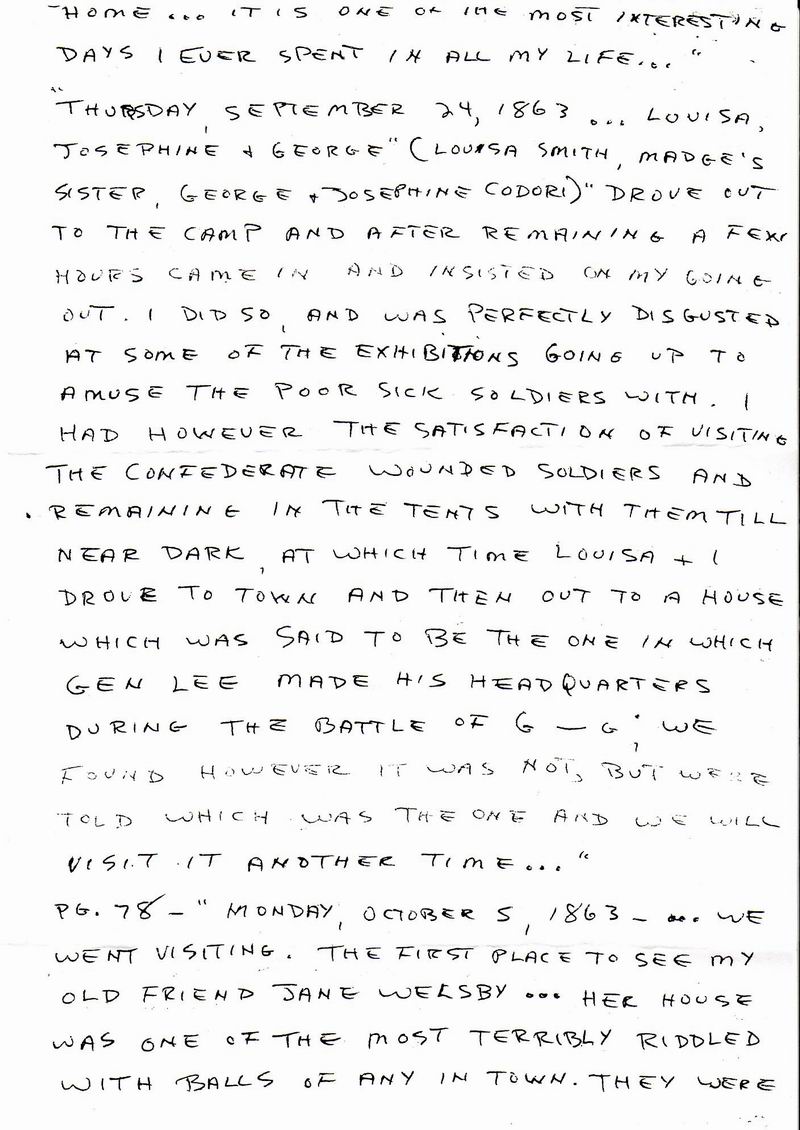 HOME ... IT IS ONE OF THE MOST INTERESTING
DAYS I EVER SPENT IN ALL MY LIFE... "
"THURSDAY, SEPTEMBER 24, 1863 ... LOUISA,
JOSEPHINE + GEORGE" (LOUISA SMITH, MADGE'S
SISTER, GEORGE + JOSEPHINE CODORI)" DROVE OUT
TO THE CAMP AND AFTER REMAINING A FEW
HOURS CAME IN AND INSISTED ON MY GOING
OUT. I DID SO, AND WAS PERFECTLY DISGUSTED
AT SOME OF THE EXHIBITIONS GOING UP TO
AMUSE THE POOR SICK SOLDIERS WITH. I
HAD HOWEVER THE SATISFACTION OF VISITING
THE CONFEDERATE WOUNDED SOLDIERS AND
REMAINING IN THE TENTS WITH THEM TILL
NEAR DARK, AT WHICH TIME LOUISA + I
DROVE TO TOWN AND THEN OUT TO A HOUSE
WHICH WAS SAID TO BE THE ONE IN WHICH
GEN LEE MADE HIS HEADQUARTERS
DURING THE BATTLE OF G — G; WE
FOUND HOWEVER IT WAS NOT, BUT WERE
TOLD WHICH WAS THE ONE AND WE WILL
VISIT IT ANOTHER TIME... "
PG. 78 - " MONDAY, OCTOBER 5, 1863 - ... WE
WENT VISITING. THE FIRST PLACE TO SEE MY
OLD FRIEND JANE WELSBY ... HER HOUSE
WAS ONE OF THE MOST TERRIBLY RIDDLED
WITH BALLS OF ANY IN TOWN. THEY WERE